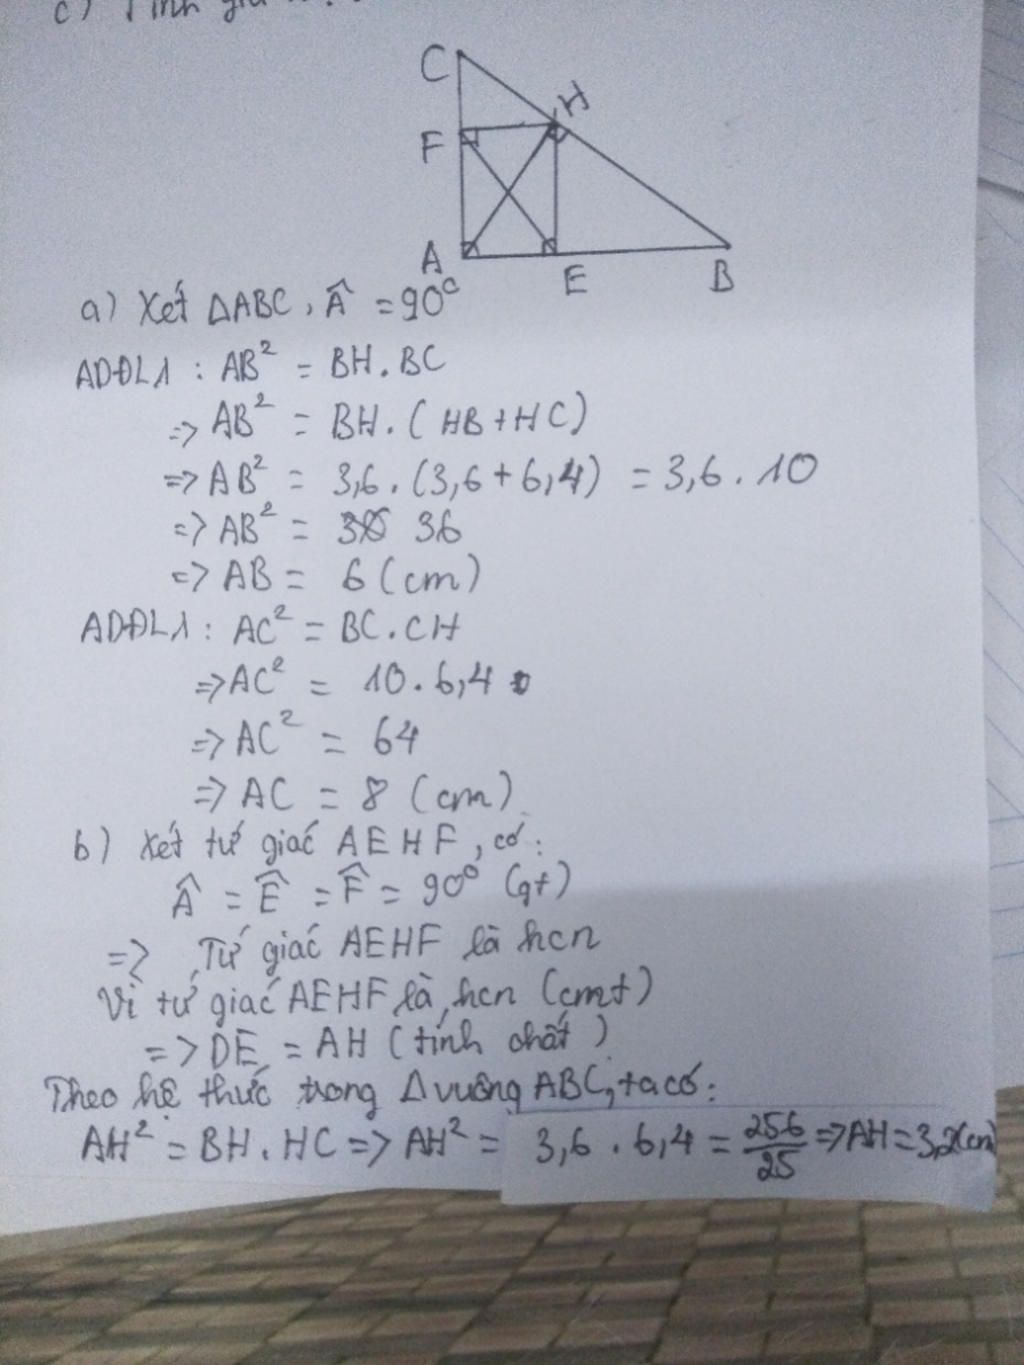 c) Tính giá
C
H
F
A
E
B
a) Xét ΔABC, Â = 90°
ADĐL1 : AB² = BH.BC
=> AB² = BH.(HB+HC)
=> AB² = 3,6.(3,6+6,4) = 3,6.10
=> AB² = 36
=> AB = 6 (cm)
ADĐL1 : AC² = BC.CH
=> AC² = 10.6,4
=> AC² = 64
=> AC = 8 (cm)
b) Xét tứ giác AEHF, có:
Â = Ê = F̂ = 90° (gt)
=> Tứ giác AEHF là hcn
Vì tứ giác AEHF là hcn (cmt)
=> DE = AH (tính chất)
Theo hệ thức trong Δvuông ABC, ta có:
AH² = BH.HC => AH² = 3,6.6,4 = 256/25 => AH = 3,2(cm)